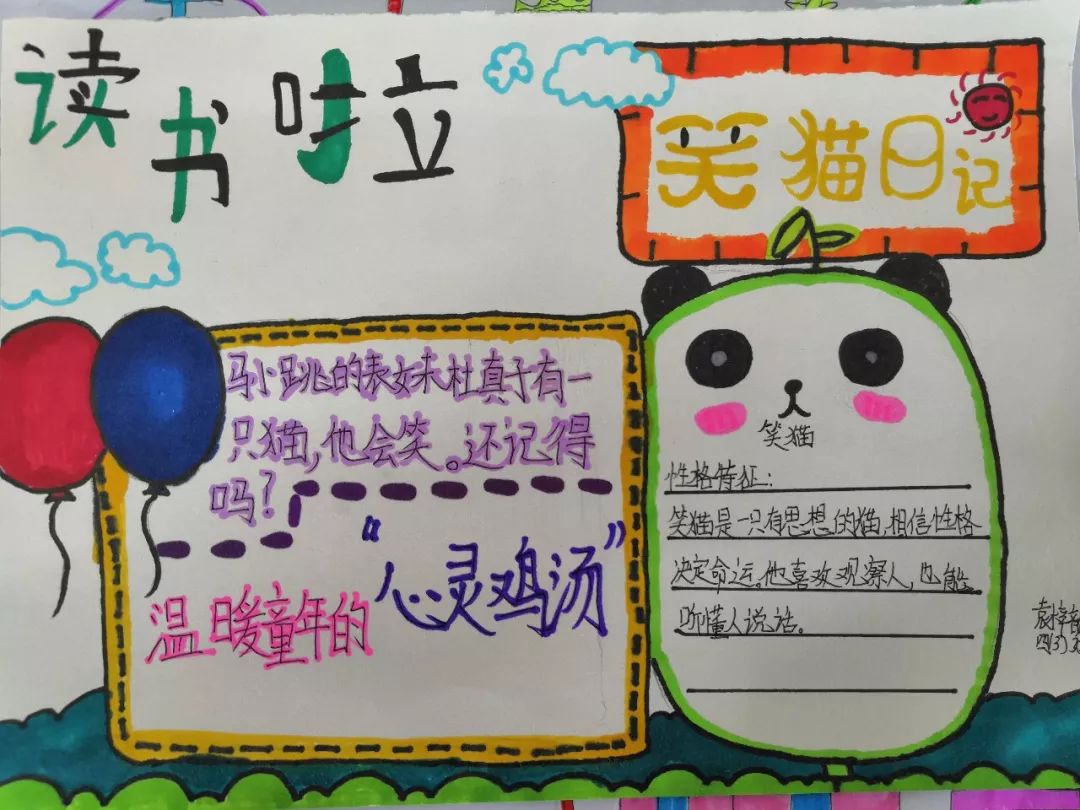 读书啦
笑猫日记
马小跳的表妹杜真子有一
只猫,他会笑。还记得
吗?
温暖童年的“心灵鸡汤”
笑猫
性格特征:
笑猫是一只有思想的猫,相信性格
决定命运。他喜欢观察人,也能
听懂人说话。
四(3)